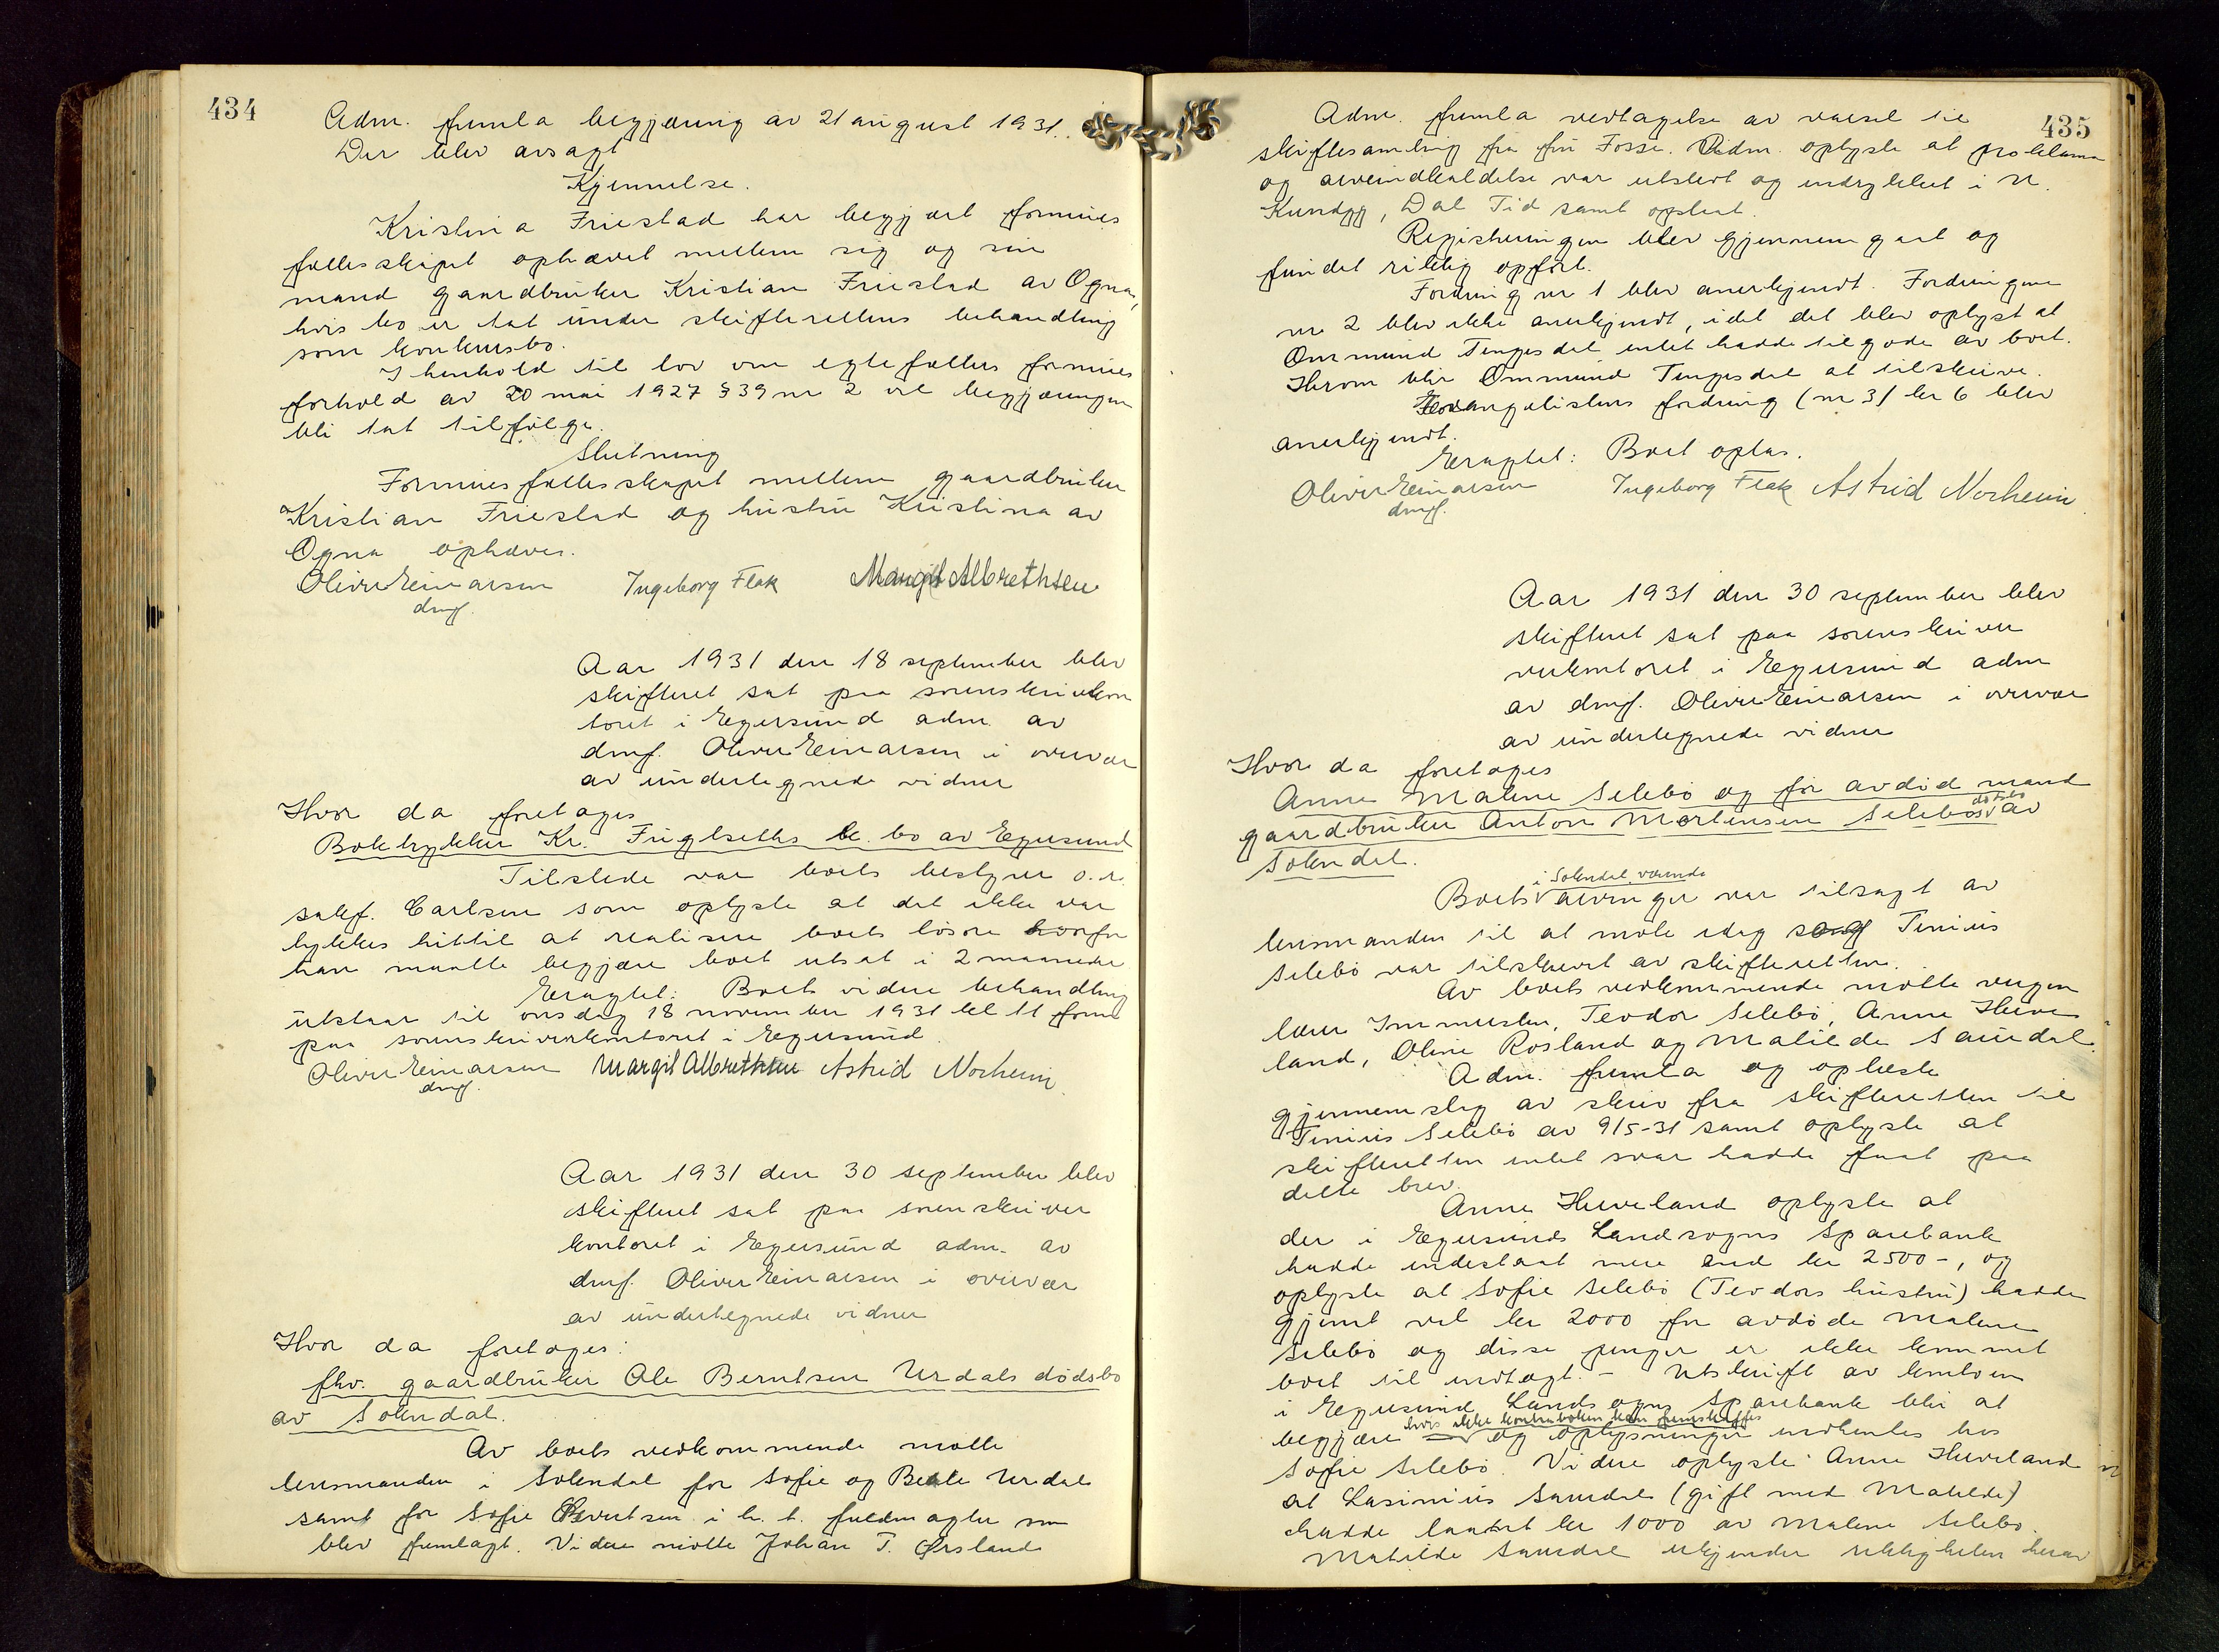 434
Adm. fremla begjæring av 21 august 1931.
Der blev avsagt
Kjennelse.
Kristina Friestad har begjært formues
fællesskapet ophævet mellem sig og sin
mand gaardbruker Kristian Friestad av Ogna,
hvis bo er tat under skifterettens behandling
som konkursbo.
I henhold til lov om egtefællers formues
forhold av 20 mai 1927 § 39 nr 2 vil begjæringen
bli tat tilfølge.
Slutning
Formuesfællesskapet mellem gaardbruker
Kristian Friestad og hustru Kristina av
Ogna ophæves.
Oliver Einarsen Ingeborg Flak Margit Albrethsen
dmf.
Aar 1931 den 18 september blev
skifteret sat paa sorenskriverkon
toret i Egersund adm. av
dmf. Oliver Einarsen i overvær
av undertegnede vidner
Hvor da foretages
Boktrykker Kr. Fuglseths k. bo av Egersund
Tilstede var boets bestyrer o.r.
sakf. Carlsen som oplyste at det ikke var
lykkes hittil at realisere boets løsøre hvorfor
han maatte begjære boet utsat i 2 maaneder
Eragtet: Boets videre behandling
utstaar til onsdag 18 november 1931 kl 11 form
paa sorenskriverkontoret i Egersund.
Oliver Einarsen Margit Albrethsen Astrid Norheim
dmf.
Aar 1931 den 30 september blev
skifteret sat paa sorenskriver
kontoret i Egersund adm. av
dmf. Oliver Einarsen i overvær
av undertegnede vidner
Hvor da foretages:
fhv. gaardbruker Ole Berntsen Urdals dødsbo
av Sokndal.
Av boets vedkommende møtte
lensmanden i Sokndal for Sofie og Beate Urdal
samt for Sofie Sivertsen i h. t. fuldmagter som
blev fremlagt. Videre møtte Johan T. Ørsland
435
Adm. fremla vedtagelse av varsel til
skiftesamling fra fru Fosse. Adm. oplyste at proklama
og arveindkaldelse var utstedt og indrykket i N.
Kundgj, Dal. Tid samt opslaat.
Registreringen blev gjennemgaat og
fundet riktig opført.
Fordring nr 1 blev anerkjendt. Fordringen
nr 2 blev ikke anerkjendt, idet det blev oplyst at
Ommund Tengesdal intet hadde tilgode av boet.
Herom blir Ommund Tengesdal at tilskrive.
Evangelistens fordring (nr 3) kr 6 blev
anerkjendt.
Eragtet: Boet optas.
Oliver Einarsen Ingeborg Flak Astrid Norheim
dmf.
Aar 1931 den 30 september blev
skifteret sat paa sorenskri ver
verkontoret i Egersund adm
av dmf. Oliver Einarsen i overvær
av undertegnede vidner
Hvor da foretages
Anne Malene Selebø og før avdød mand
gaardbruker Anton Mortensen Selebøs dødsbo av
Sokndal.
Boets i Sokndal værende arvinger var tilsagt av
lensmanden til at møte idag og Tinius
Selebø var tilskrevet av skifteretten.
Av boets vedkommende møtte vergen
lærer Immerstein, Teodor Selebø, Anne Huve
land, Oline Rosland og Matilde Saurdal.
Adm. fremla og oplæste
gjennemslag av skriv fra skifteretten til
Tinius Selebø av 9/5-31 samt oplyste at
skifteretten intet svar hadde faat paa
dette brev.
Anne Huveland oplyste at
der i Egersunds Landsogns Sparebank
hadde indestaat mere end kr 2500-, og
oplyste at Sofie Selebø (Teodors hustru) hadde
gjemt vel kr 2000 for avdøde Malene
Selebø og disse penger er ikke kommet
boet til indtægt. - Utskrift av kontoen
i Egersund Landsogns Sparebank blir at
begjære hvis ikke kontraboken kan fremskaffes og oplysninger indhentes hos
Sofie Selebø. Videre oplyste Anne Huveland
at Lasinius Saurdal (gift med Matilde)
hadde laanet kr 1000 av Malene Selebø.
Matilde Saurdal erkjender riktigheten herav